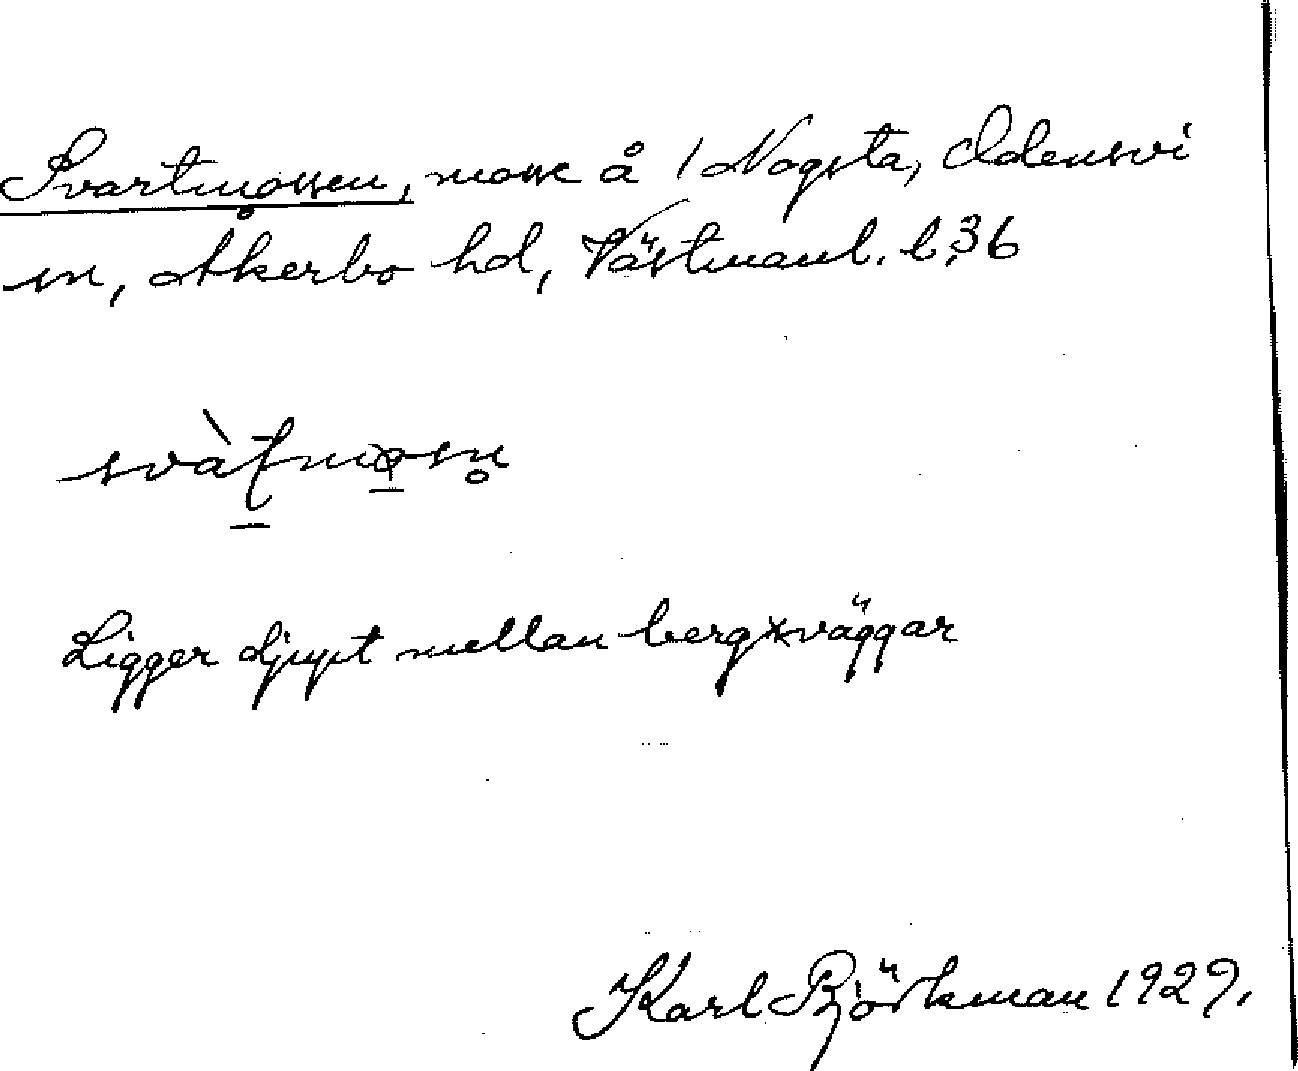 Svartmossen, mosse å 1 Nogsta, Odensvi
sn, Åkerbo hd, Västmanl. l. 36
Ligger djupt mellan bergxväggar
Karl Björkman 1929.